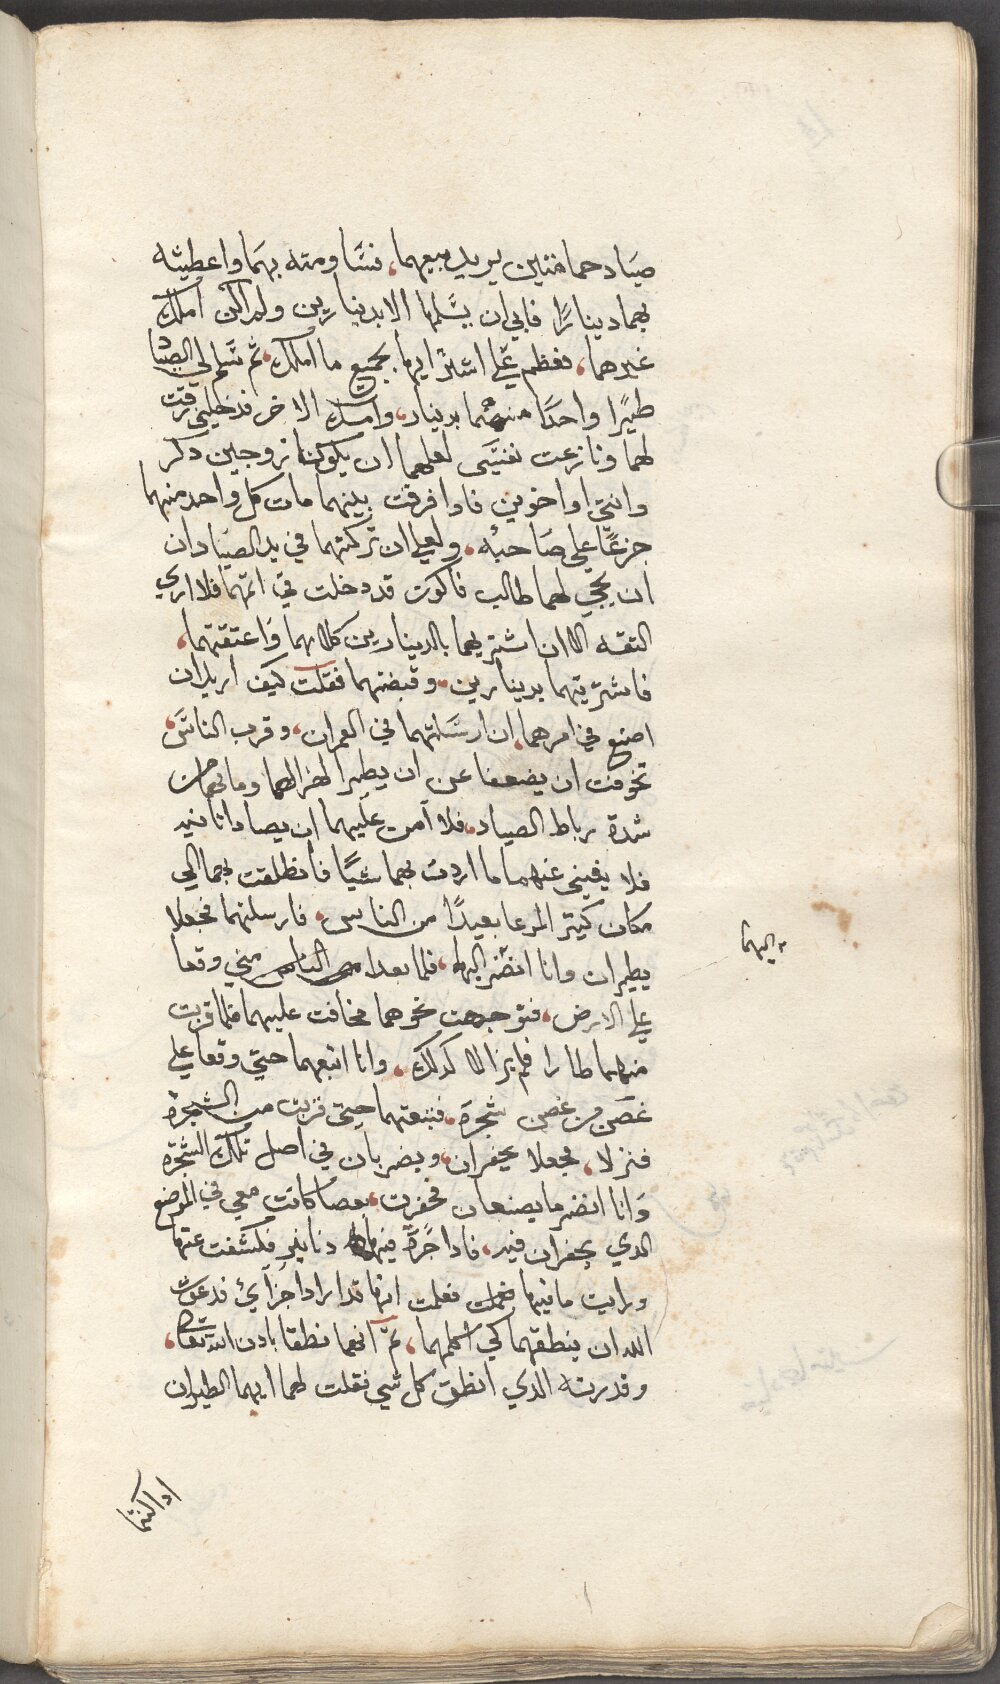 صيّاد حمامتين يريد بيعهما، فسَاومته بهمَا واعطيته
بهما دينارًا فابي ان يسَلمها الا بدينارين ولم اكن املك
غيرهما، فعظم عَلَي اشترايها بجميع ما املك، ثم سَلم لي الصيَّاد
طيرًا واحدًا منهما بدينار، وامسك الاخر فدخلني رقت
لهما ونازعت نفسَى لعلهما ان يكونا زوجين دكر
وانتي او اخوين فادا فرقت بينهما مات كل واحد منهما
جزعًا علي صَاحبه، ولعلي ان تركتهما في يد الصيّاد ان
ان يجي لهما طالب فاكون قد دخلت في اتمهما فلا اري
التقه الا ان اشتريهما بالدينارين كلاهما وَاعتقتهما،
فاشتريتهما بدينارين، وقبضتهما فقلت كيف اريد ان
اصنع في امرهما، ان ارسَلتهما في العمران، وقرب الناسَ،
تخوفت ان يضعفا عن ان يطيرا لهزالهما وما بهما من
شدة رباط الصياد، فلا آمن عليهما ان يصادا تانيه
فلا يغيني عنهما ما اردت بهما شيًا فأنطلقت بهما الي
مكان كتير المرعا بعيدًا من الناس، فارسلتهما فجعلا
يطيران وانا انضر اليهما، فلما بعدا من الناس مني وقعا
علي الارض، فتوجهت نحوهما مخافت عليهما فلما قربت
منهما طارا فلم يزالا كدلك، وانا اتبعهما حتي وقعا علي
غصَن من غصن شجرَة، فتبعتهما حتي قربت من الشجرة
فنزلا، فجعلا يحفران، ويضربان في اصل تلك الشجَرة
وَانا انضر ما يصنعان فحفرت، بعصا كانت معي في الموضع
الدي يحفران فيه، فادا جَرّة فيها دنانير فكشفت عنها
ورايت ما فيها فعلمت انهما قد ارادا جزآيئ فدعوت
الله ان ينطقهما كي اكلمهما، ثمّ انهما نطقا بادن الله تعالي،
وقدرته الدي انطق كل شي فقلت لهما ايهما الطيران
اليهما
اد اكنتما